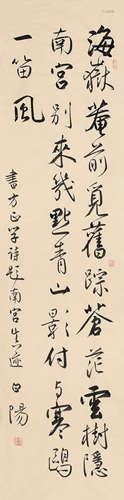 海嶽菴前覓舊踪蒼茫雲樹隱
南宮別來幾點青山影付与寒鷗
一笛風
書方正学詩題南宮生邁 白陽